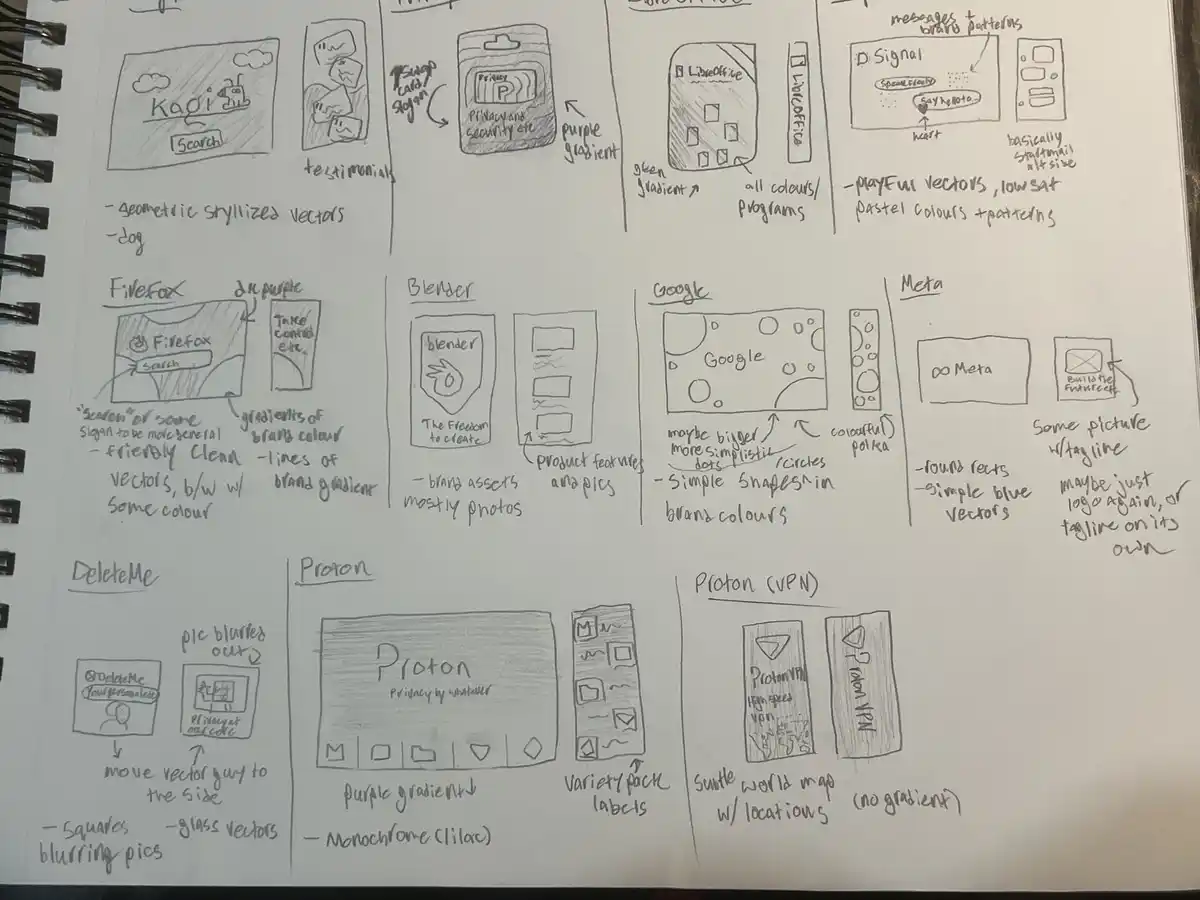 Kagi
Search
testimonial
-geometric styllized vectors
-dog
swap
card/
slogan
Privacy
P
Privacy and
security etc
purple
gradient
LibreOffice
LibreOffice
green
gradient
all colours/
programs
messages +
brand patterns
Signal
Speak freely
Say hello to
heart
basically
startmail
alt size
-playful vectors, low sat
pastel colours + patterns
Firefox
drk purple
Firefox
Search
Take
control
etc.
"search" or some
slogan to be more general
gradients of
brand colour
-friendly clean
vectors, b/w w/
some colour
-lines of
brand gradient
Blender
blender
The Freedom
to create
product features
and pics
-brand assets
mostly photos
Google
Google
maybe bigger
more simplistic
dots /circles
colourful
polka
-simple shapes in
brand colours
Meta
∞ Meta
Build the
Future
some picture
w/tagline
maybe just
logo again, or
tagline on its
own
-round rects
-simple blue
vectors
DeleteMe
pic blurred
out
DeleteMe
Your personal
Privacy at
our core
move vector guy to
the side
-squares
blurring pics
-glass vectors
Proton
Proton
Privacy by whatever
purple gradient↓
variety pack
labels
-Monochrome (lilac)
Proton (VPN)
Proton VPN
High speed
VPN
Proton VPN
subtle world map
w/ locations
(no gradient)